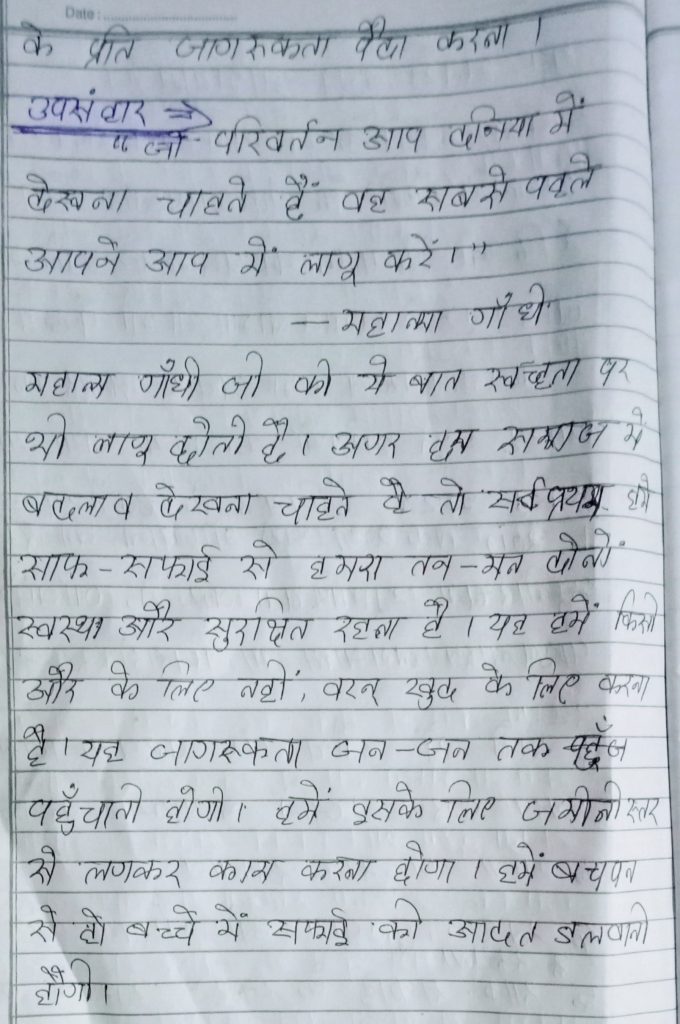 Date :
के प्रति जागरुकता पैदा करना ।
उपसंहार ⇒
"जो परिवर्तन आप दुनिया में
देखना चाहते हैं वह सबसे पहले
आपने आप में लागू करें।"
— महात्मा गाँधी
महात्म गाँधी जी की ये बात स्वच्छता पर
भी लागू होती है। अगर हम समाज में
बदलाव देखना चाहते है तो सर्वप्रथम हमे
साफ-सफाई से हमरा तन-मन दोनों
स्वस्था और सुरक्षित रहना है । यह हमें किसी
और के लिए नहीं, वरन् खुद के लिए करना
है। यह जागरुकता जन-जन तक
पहुँचानी होगी। हमें इसके लिए जमीनी स्तर
से लगकर काम करना होगा । हमें बचपन
से ही बच्चे में सफाई की आदत डलवानी
होंगी।